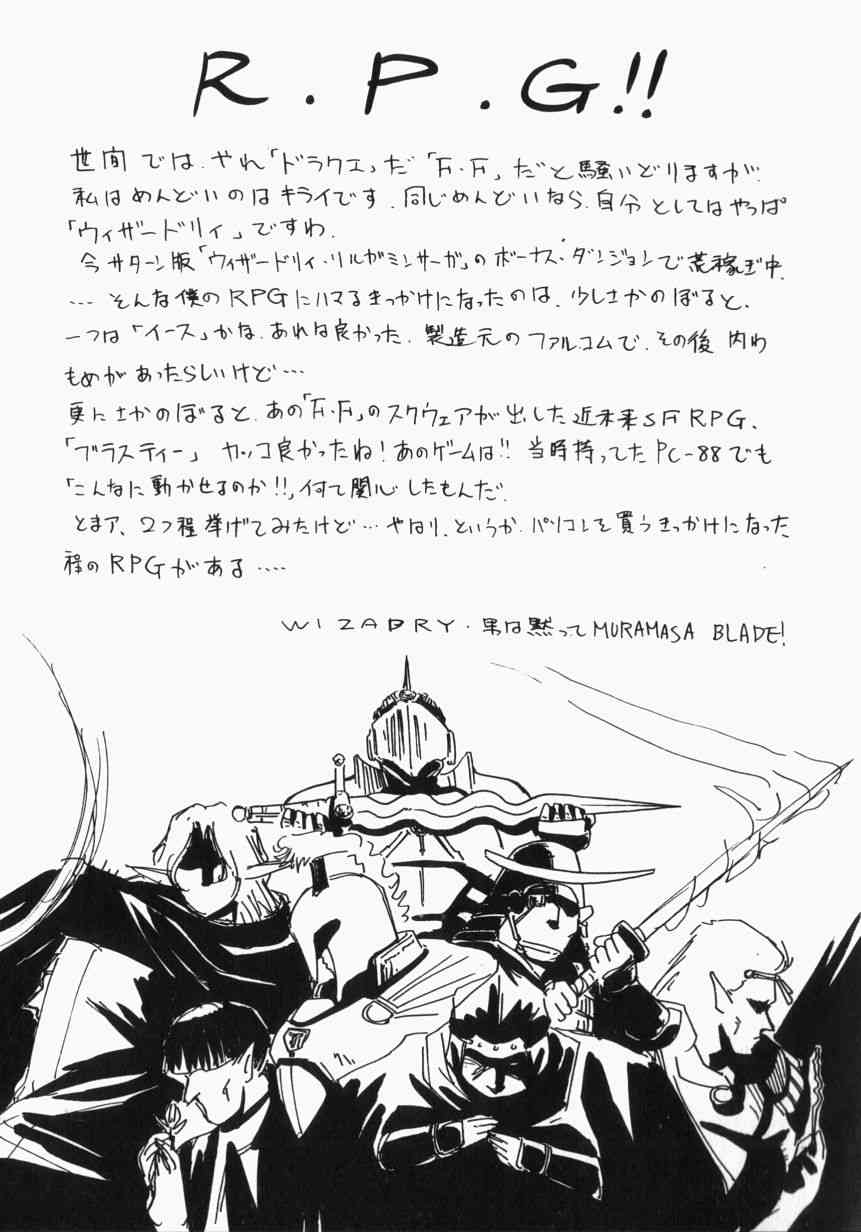 R.P.G!!
世間では、やれ「ドラクエ」だ「F.F」だと騒いどりますが、
私はめんどいのはキライです。同じめんどいなら、自分としてはやっぱ
「ウィザードリィ」ですわ。
今サターン版「ウィザードリィ・リルガミンサーガ」のボーナス・ダンジョンで荒稼ぎ中。
…そんな僕のRPGにハマるきっかけになったのは、少しさかのぼると、
一つは「イース」かな、あれは良かった。製造元のファルコムで、その後内わ
もめがあったらしいけど…
更にさかのぼると、あの「F.F」のスクウェアが出した近未来SFRPG、
「ブラスティー」カッコ良かったね!あのゲームは!!当時持ってたPC-88でも
「こんなに動かせるのか!!」何て関心したもんだ。
とまア、2つ程挙げてみたけど…やはり、というか、パソコンを買うきっかけになった
程のRPGがある….
WIZADRY・男は黙ってMURAMASA BLADE!